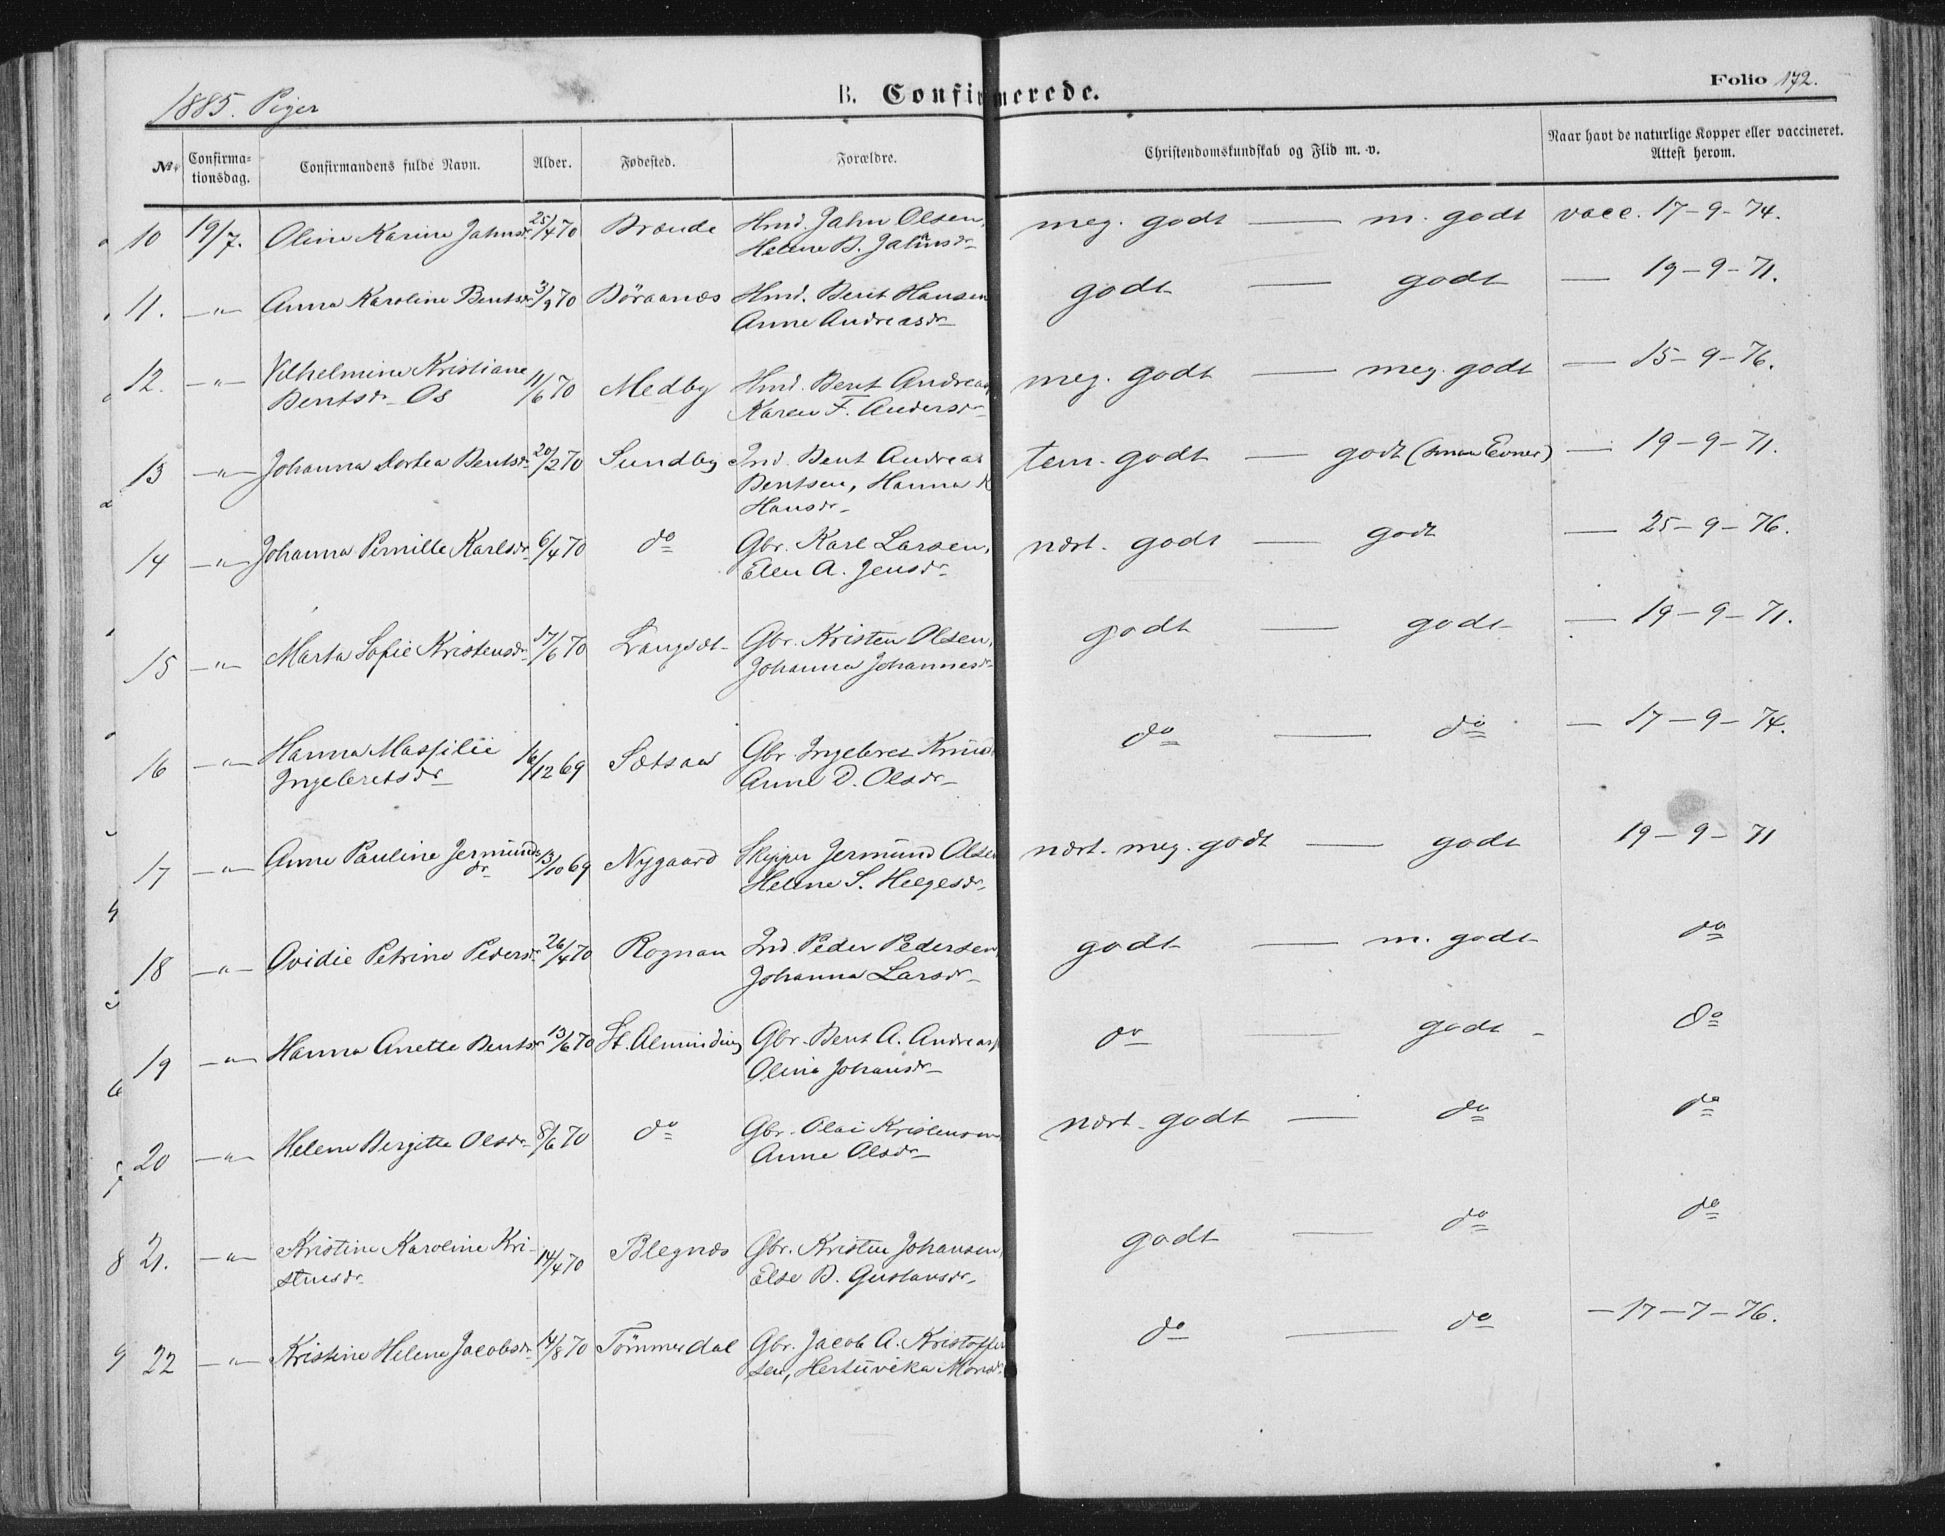 1885. Piger
B. Confirmerede.
Folio 172.
No.
Confirma-
tionsdag.
Confirmandens fulde Navn.
Alder.
Fødested.
Forældre.
Christendomskundskab og Flid m. v.
Naar havt de naturlige Kopper eller vaccineret.
Attest herom.
10 19/7. Oline Karine Jahnsdr 25/4 70 Brænde Hmd. Jahn Olsen, meg. godt — m. godt vacc. 17-9-74.
Helene B. Jahnsdr
11. —"— Anna Karoline Bentsdr 3/9 70 Böraanæs Hmd. Bent Hansen godt — godt — 19-9-71.
Anne Andreasdr
12. —"— Vilhelmine Kristiane 11/6 70 Medby Hmd. Bent Andreas meg. godt — meg. godt — 15-9-76.
Bentsdr Os Karen F. Andersdr
13 —"— Johanna Dortea Bentsdr 20/2 70 Sundby Ind. Bent Andreas tem. godt — godt (smaa Evner) — 19-9-71.
Bentsen, Hanna K
Hansdr
14 —"— Johanna Pernille Karlsdr 6/4 70 do Gbr. Karl Larsen, nært. godt — godt — 25-9-76.
Elen A. Jensdr
15 —"— Marta Sofie Kristensdr 17/6 70 Langset Gbr. Kristen Olsen, godt — godt — 19-9-71.
Johanna Johannesdr
16 —"— Hanna Massilie 16/12 69 Sætsaa Gbr. Ingebret Knud do — do — 17-9-74.
Ingebretsdr Anne D. Olsdr
17 —"— Anne Pauline Jermunds 13/10 69 Nygaard Skipper Jermund Olsen nært. meg. godt — godt 19-9-71
dr Helene S. Helgesdr
18 —"— Ovidie Petrine Pedersdr 26/4 70 Rognan Ind. Peder Pedersen, godt — m. godt do
Johanna Larsdr
19 —"— Hanna Anette Bentsdr 13/6 70 St. Alminding Gbr. Bent A. Andreas do — godt do
Olina Johansdr
20 —"— Helene Bergitte Olsdr 8/6 70 do Gbr. Olai Kristensen nært. godt — do do
Anne Olsdr
21. —"— Kristine Karoline Kri- 14/4 70 Blegnæs Gbr. Kristen Johansen, godt — do do
stensdr Else B. Gustavsdr
22 —"— Kristine Helene Jacobsdr 14/8 70 Tömmerdal Gbr. Jacob A. Kristoffer do — do — 17-7-76.
sen, Hertuvika Monsdr